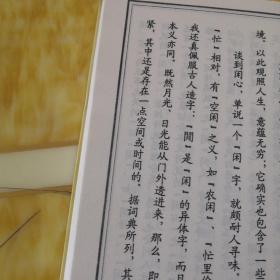 境。以此观照人生，意蕴无穷，它确实也包含了一
谈到闲心，单说一个“闲”字，就颇耐人寻味。
“忙”相对，有“空闲”之义，如“农闲”、“忙里偷
我还真佩服古人造字：“閒”是“闲”的异体字，而且
本义亦同。既然月光、日光能从门外透进来，那么，即
紧，其中还是存在一点空间或时间的。据词典所列，其